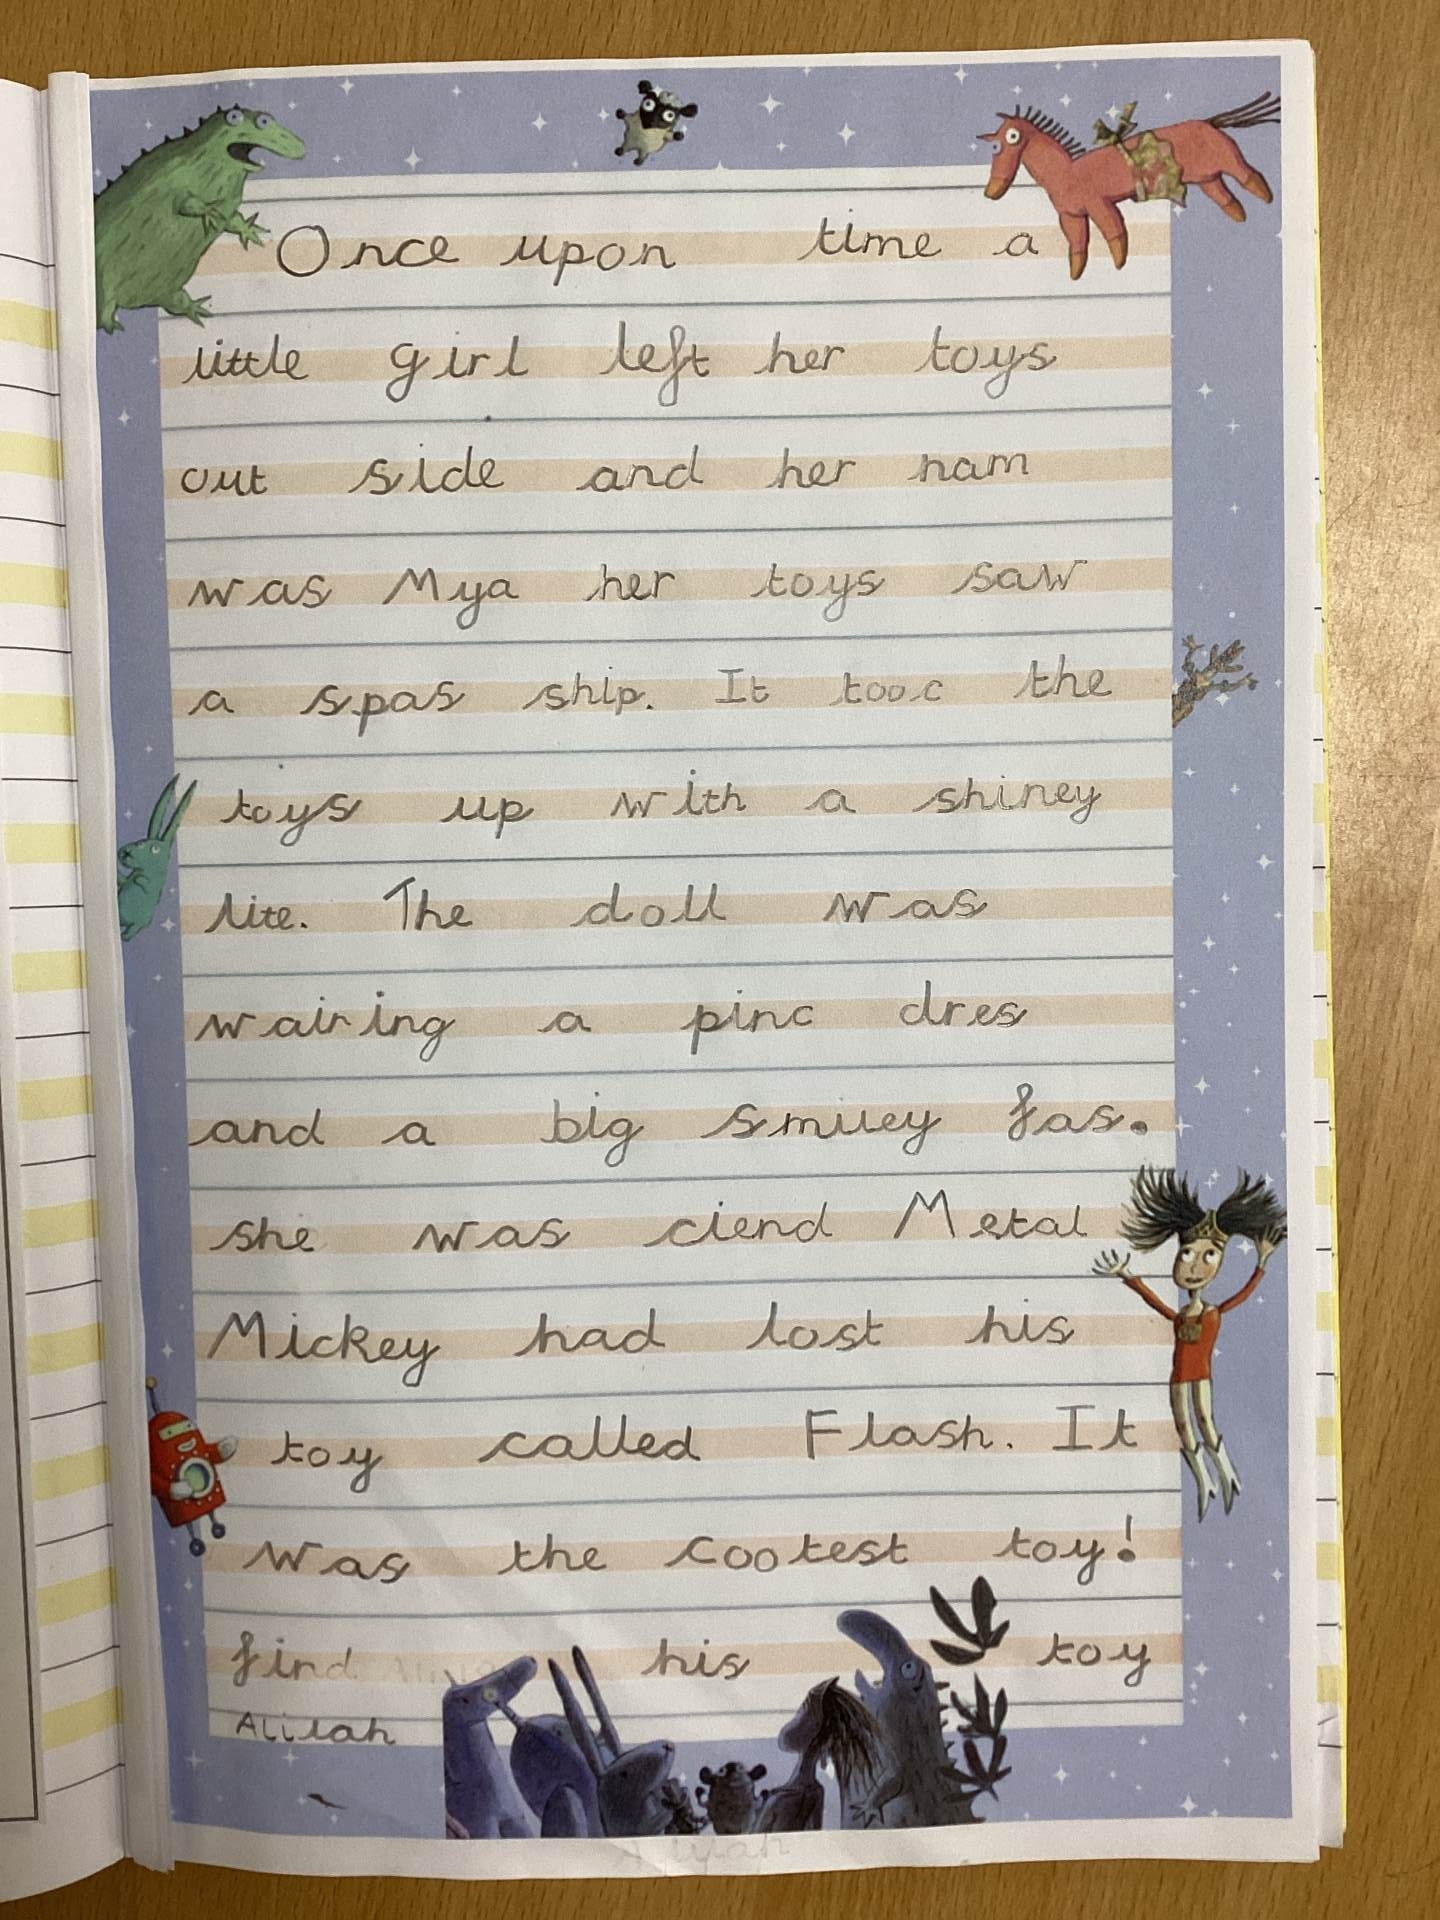 Once upon time a
little girl left her toys
out side and her nam
was Mya her toys saw
a spas ship. It tooc the
toys up with a shiney
lite. The doll was
wairing a pinc dres
and a big smiley fas.
she was ciend Metal
Mickey had lost his
toy called Flash. It
was the coolest toy!
find his toy